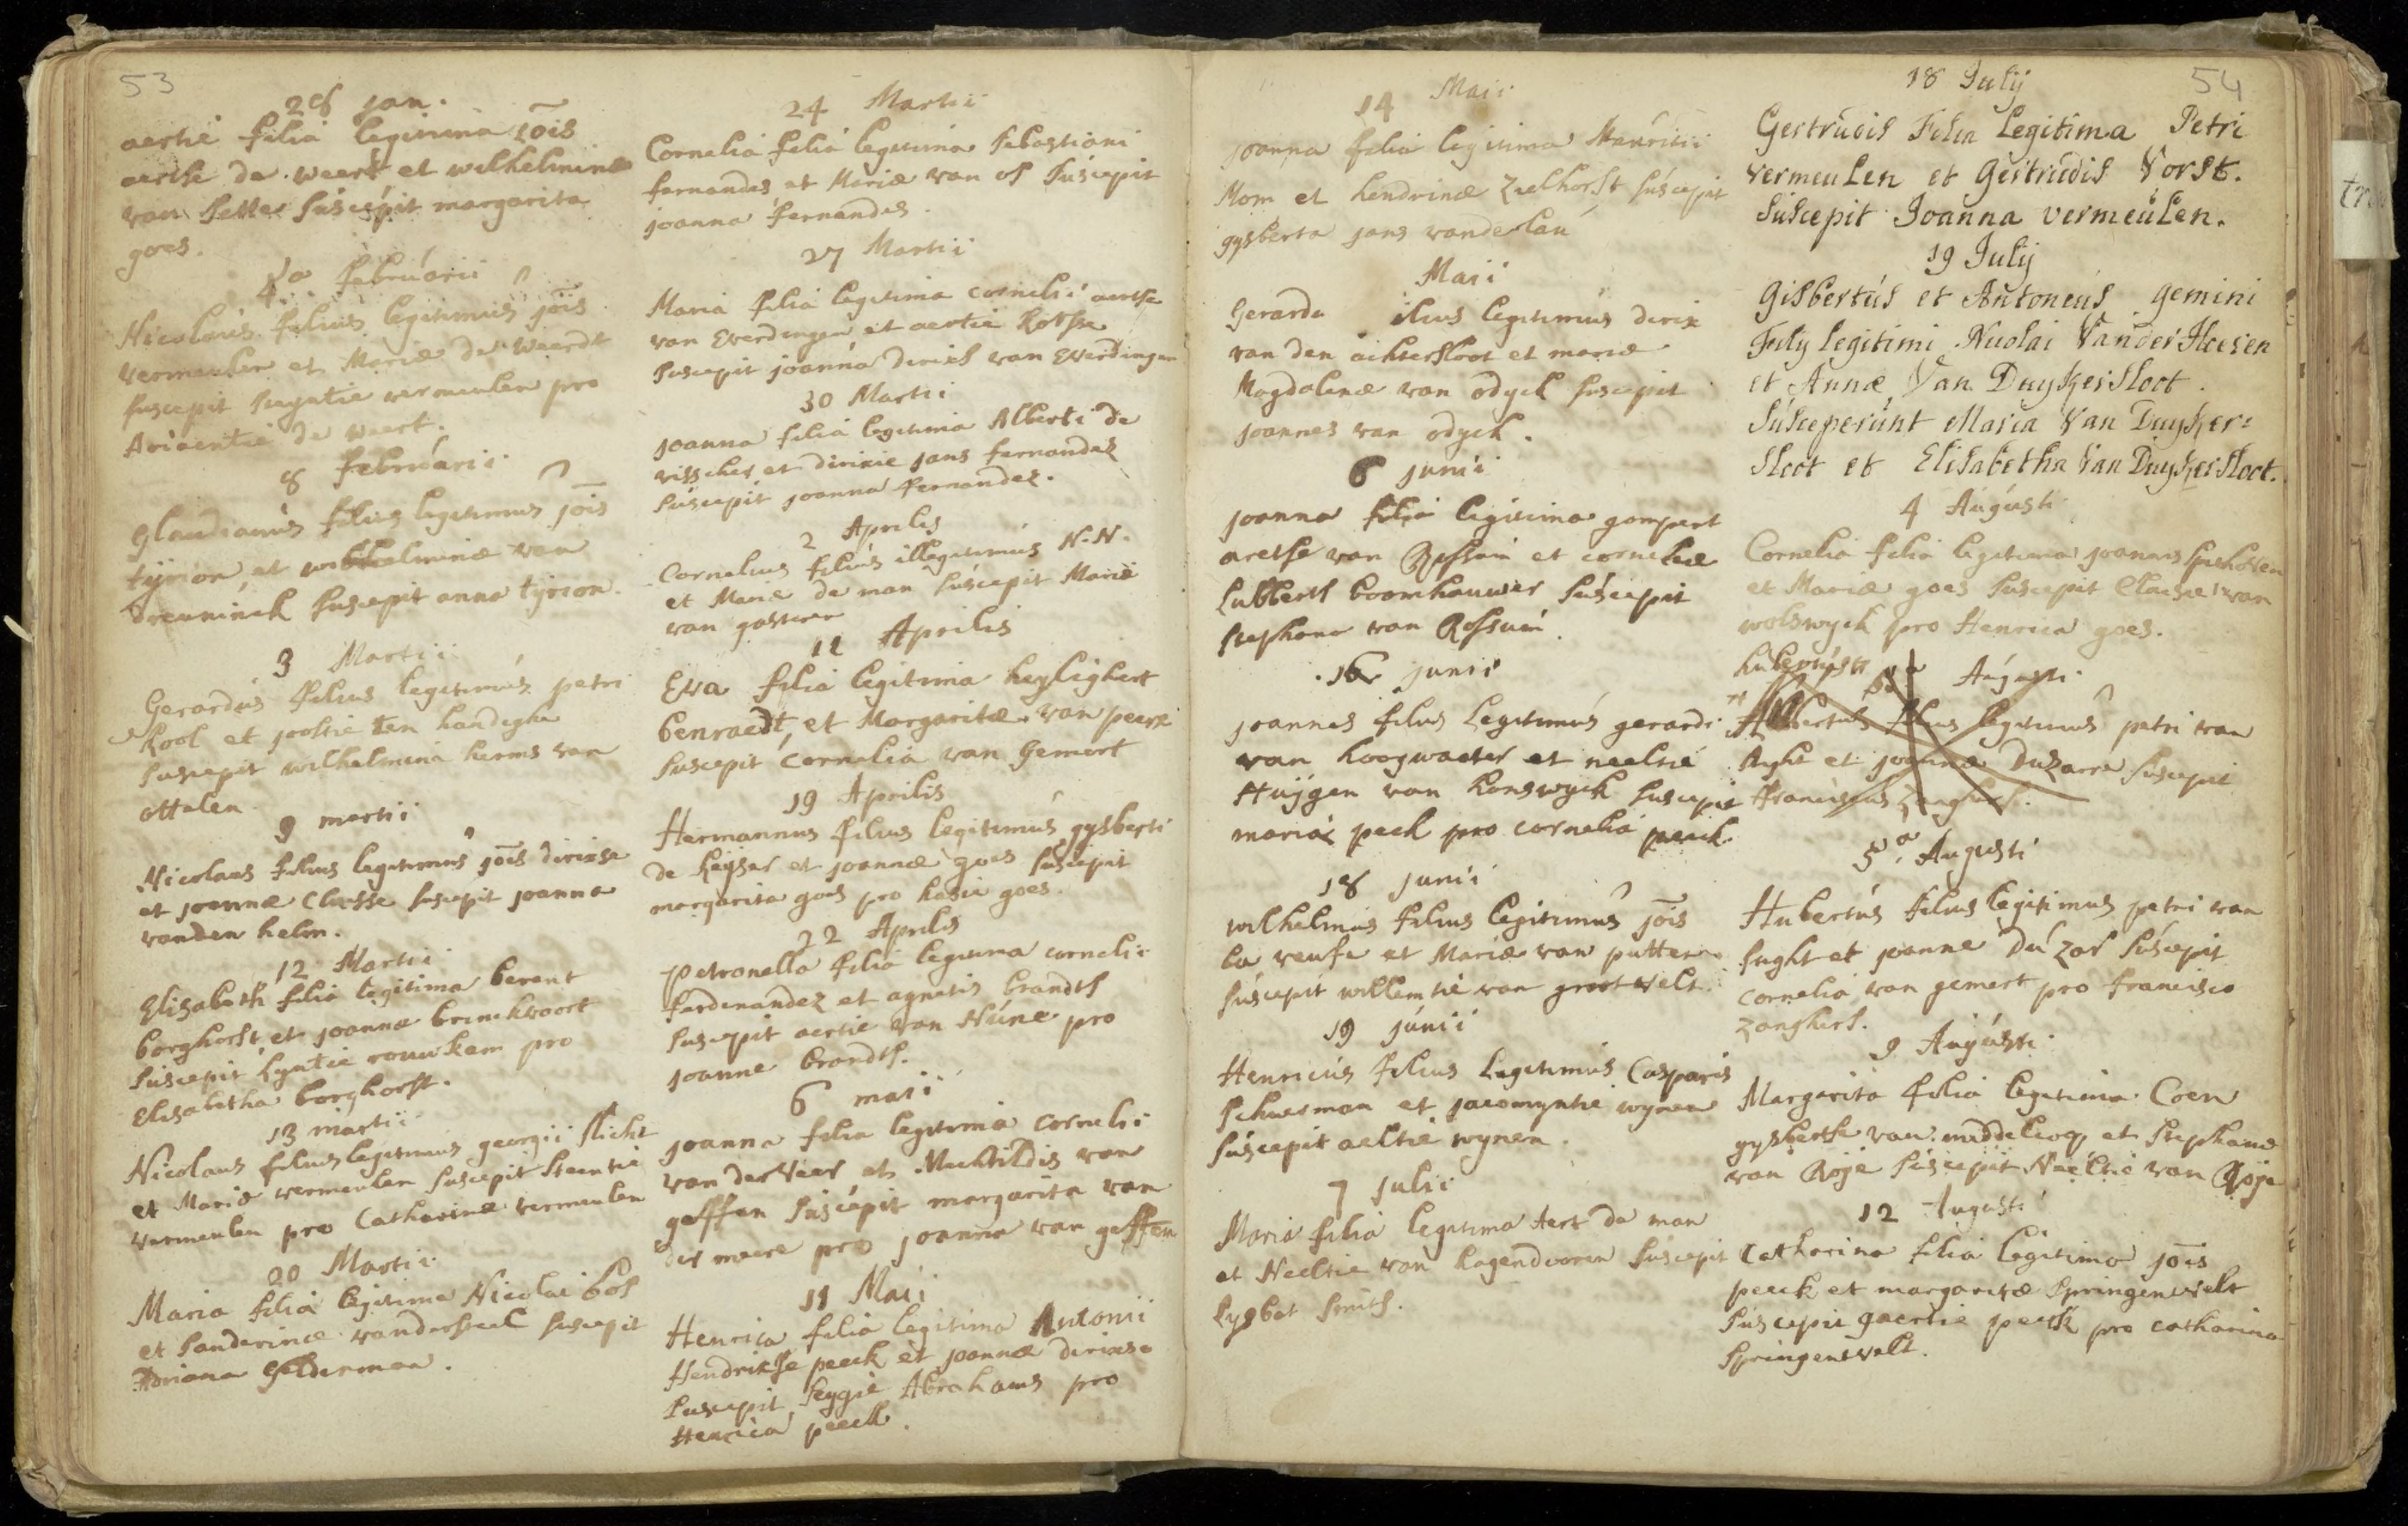 53
28 jan.
aertie filia legitima jois
aertse de weert et wilhelminæ
van settes suscepit margarita
goes.
4a februarii
Nicolaus filius legitimus jois
vermeulen et Mariæ de weerdt
suscepit vermeulen pro
Ariaentie de weert.
8 februarii
Glaudianus filius legitimus jois
tyrion et wilhelminæ van
dreuninck suscepit anna tyrion.
3 Martii
Gerardus filius legitimus petri
kool et joostie ten handighe
suscepit wilhelmina herms van
ottelen
9 martii
Nicolaus filius legitimus jois dirixse
et joannæ Claesse suscepit joanna
vanden helm.
12 Martii
Elisabeth filia legitima berent
borghorst et joannæ brinckvoort
suscepit lyntie rouwkem pro
Elisabetha borghorst.
13 martii
Nicolaus filius legitimus georgii slicht
et Mariæ vermeulen suscepit steentie
vermeulen pro Catharinæ vermeulen
20 Martii
Maria filia legitima Nicolai bos
et sanderinæ vandersteel suscepit
Adriana Gelderman.
24 Martii
Cornelia filia legitima sebastiani
fernandes et Mariæ van os suscepit
joanna fernandes.
27 Martii
Maria filia legitima cornelii aertse
van Everdingen et aertie Rotse
suscepit joanna dirixs van Everdingen
30 Martii
joanna filia legitima Alberti de
visscher et dirixie jans fernandes
suscepit joanna fernandez.
2 Aprilis
Cornelius filius illegitimus N.N.
et Mariæ de man suscepit Maria
van
11 Aprilis
Eva filia legitima heylighert
benraedt, et Margaritæ van peerx
suscepit Cornelia van Gemert
19 Aprilis
Hermannus filius legitimus gysberti
de keyser et joannæ goes suscepit
margarita goes pro hasie goes.
22 Aprilis
petronella filia legitima cornelii
ferdenandez et agnetis brandts
suscepit aertie van Hune pro
joanne brandts.
6 maii
joanna filia legitima cornelii
van der Veer et Mechtildis van
geffen suscepit margarita van
der meere pro joanna van geffen
11 Maii
Henrica filia legitima Antonii
Hendrixse peeck et joannæ dirixse
suscepit seygie Abrahams pro
Henrica peeck.
14 Maii
joanna filia legitima Mauritii
Mom et hendrinæ zulhorst suscepit
gysberta jans vanderlau
Maii
Gerardu ilius legitimus dirix
van den achtersloot et mariæ
Magdalenæ van odyck suscepit
joannes van odyck.
6 junii
joanna filia legitima gompert
aretse van Rossum et corneliæ
Lubberts boomhauwer suscepit
stephana van Rossum.
16 junii
joannes filius Legitimus gerardi
van hoogwater et neeltie
Huygen van honswyck suscepit
maria peek pro cornelia peeck.
18 junii
wilhelmus filius legitimus jois
la reuse et Mariæ van putten
suscepit willemtie van grootvelt.
19 junii
Henricus filius Legitimus Casparis
schuerman et jacomyntie wynen
suscepit aeltie wynen.
7 julii
Maria filia legitima Aert de man
et Neeltie van hagendooren suscepit
Lysbet smits.
54
18 July
Gertrudis Filia Legitima Petri
vermeulen et Gertrudis Vorst.
Suscepit Joanna vermeulen.
19 July
Gisbertus et Antoneus gemini
Fuly legitimi Nicolai Vander Heesen
et Annæ Van Duykersloot.
Susceperunt Maria Van Duyker=
sloot et Elisabetha Van Duykersloot.
4 Augusti
Cornelia filia legitima joannis spiehoven
et Mariæ goes suscepit Claesie van
wolswyck pro Henrica goes.
hubertus 5a Augusti.
Albertus filius legitimus petri van
lught et joannæ duzarre suscepit
franciscus zanghers.
5a Augusti
Hubertus filius legitimus petri van
lught et joanne duzar suscepit
cornelia van gemert pro francisco
zanghers.
9 Augusti
Margarita filia legitima Coen
gysbertse van middelcoop et stephanæ
van Roije suscepit Neeltie van Roije
12 Augusti
Catharina filia legitima jois
peeck et margaritæ springentvelt
suscepit gaertie peeck pro catharina
springentvelt.